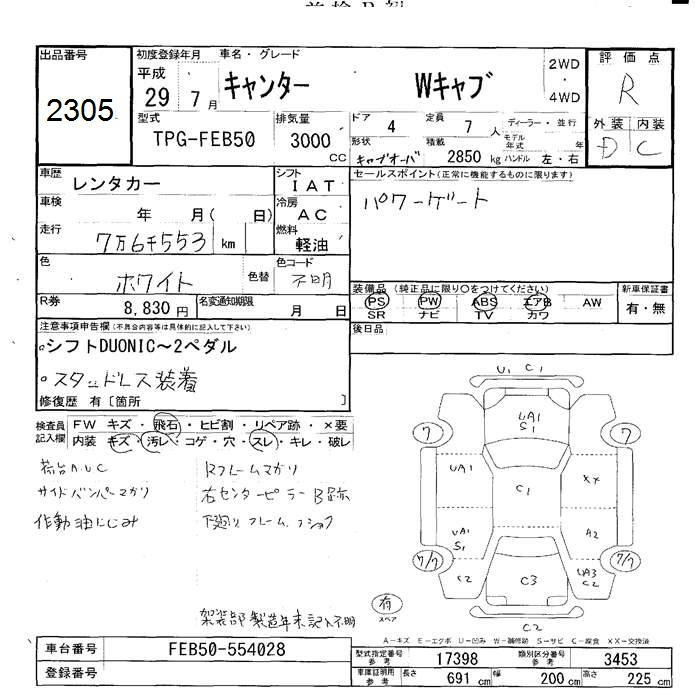 出品番号
2305
初度登録年月
平成
29 7月
車名・グレード
キャンター Wキャブ
2WD
・
4WD
評価点
R
外装 内装
D C
型式
TPG-FEB50
排気量
3000
CC
ドア
4
定員
7
人
ディーラー・並行
モデル
年式
年
形状
キャブオーバ
積載
2850 kg
ハンドル 左・右
車歴
レンタカー
シフト
IAT
セールスポイント(正常に機能するものに限ります)
パワーゲート
車検
年 月( 日)
冷房
AC
走行
7万6千553 km
燃料
軽油
色
ホワイト
色替
色コード
不明
装備品 (純正品に限り○をつけてください)
PS PW ABS エアB AW
SR ナビ TV カワ
新車保証書
有・無
R券
8,830円
名変通知期限
月 日
後日品
注意事項申告欄(不具合内容等は具体的に記入して下さい)
。シフトDUONIC~2ペダル
。スタッドレス装着
修復歴 有〔箇所 〕
検査員
記入欄
FW キズ・飛石・ヒビ割・リペア跡・×要
内装 キズ・汚レ・コゲ・穴・スレ・キレ・破レ
荷台A.U.C
サイドバンパーマガリ
作動油にじみ
Rフレームマガリ
右センターピラーB跡
下廻りフレーム
架装部製造年未記入不明
U1 C1
UA1
S1
7
7
UA1
XX
C1
UA1
S1
A2
7/7
7/7
C2
C3
UA3
C2
有
スペア
C2
A-キズ E-エクボ U-凹み W-補修跡 S-サビ C-腐食 XX-交換済
車台番号
FEB50-554028
登録番号
型式指定番号
参考
17398
類別区分番号
参考
3453
車庫証明用
参考
長さ
691 cm
幅
200 cm
高さ
225 cm